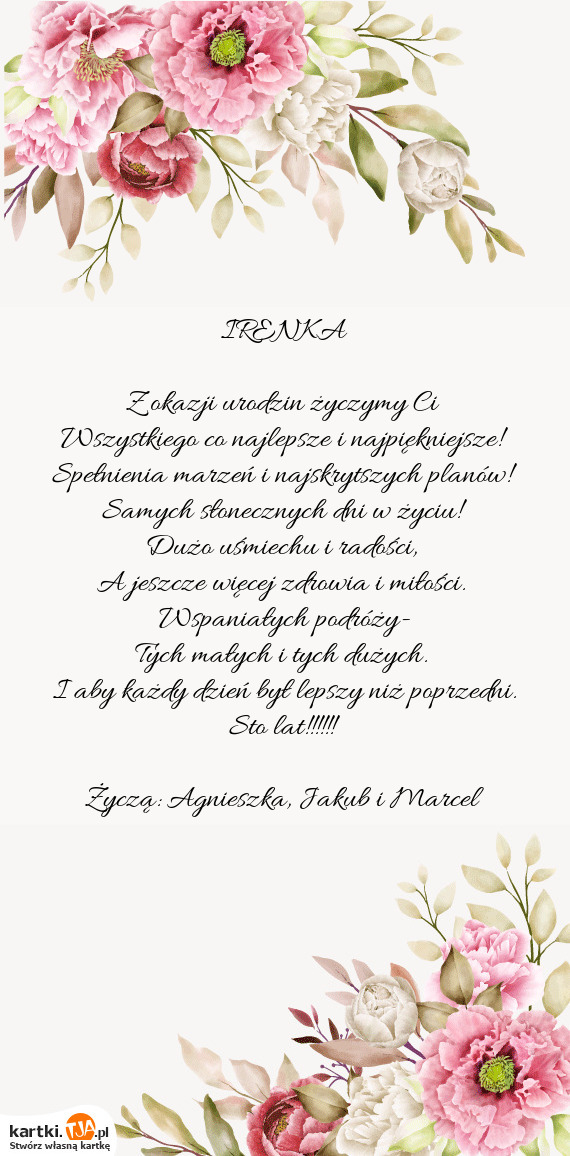 IRENKA
Z okazji urodzin życzymy Ci
Wszystkiego co najlepsze i najpiękniejsze!
Spełnienia marzeń i najskrytszych planów!
Samych słonecznych dni w życiu!
Dużo uśmiechu i radości,
A jeszcze więcej zdrowia i miłości.
Wspaniałych podróży-
Tych małych i tych dużych.
I aby każdy dzień był lepszy niż poprzedni.
Sto lat!!!!!!
Życzą: Agnieszka, Jakub i Marcel
kartki.TJA.pl
Stwórz własną kartkę